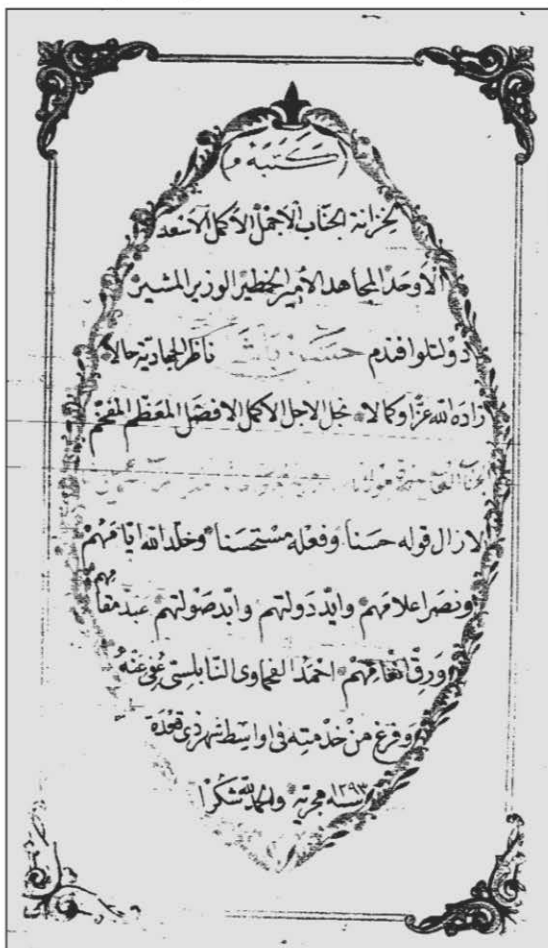 (كتبه)
لخزانة الجناب الاجمل الاكمل الاسعد
الاوحد المجاهد الامير الخطير الوزير المشير
دولتلو افندم حسن باشا ناظر الجهادية حالا
زاده الله عزا وكمالا نجل الاجل الاكمل الافضل المعظم المفخم
لازال قوله حسنا وفعله مستحسنا وخلد الله ايامهم
ونصر اعلامهم وايد دولتهم وابد صولتهم عبد مقامهم
ورق انعامهم احمد الفحماوى النابلسى عفى عنه
وفرغ من خدمته فى اواسط شهر ذى قعدة
سنة ١٢٩٣ هجرية والحمد لله شكرا